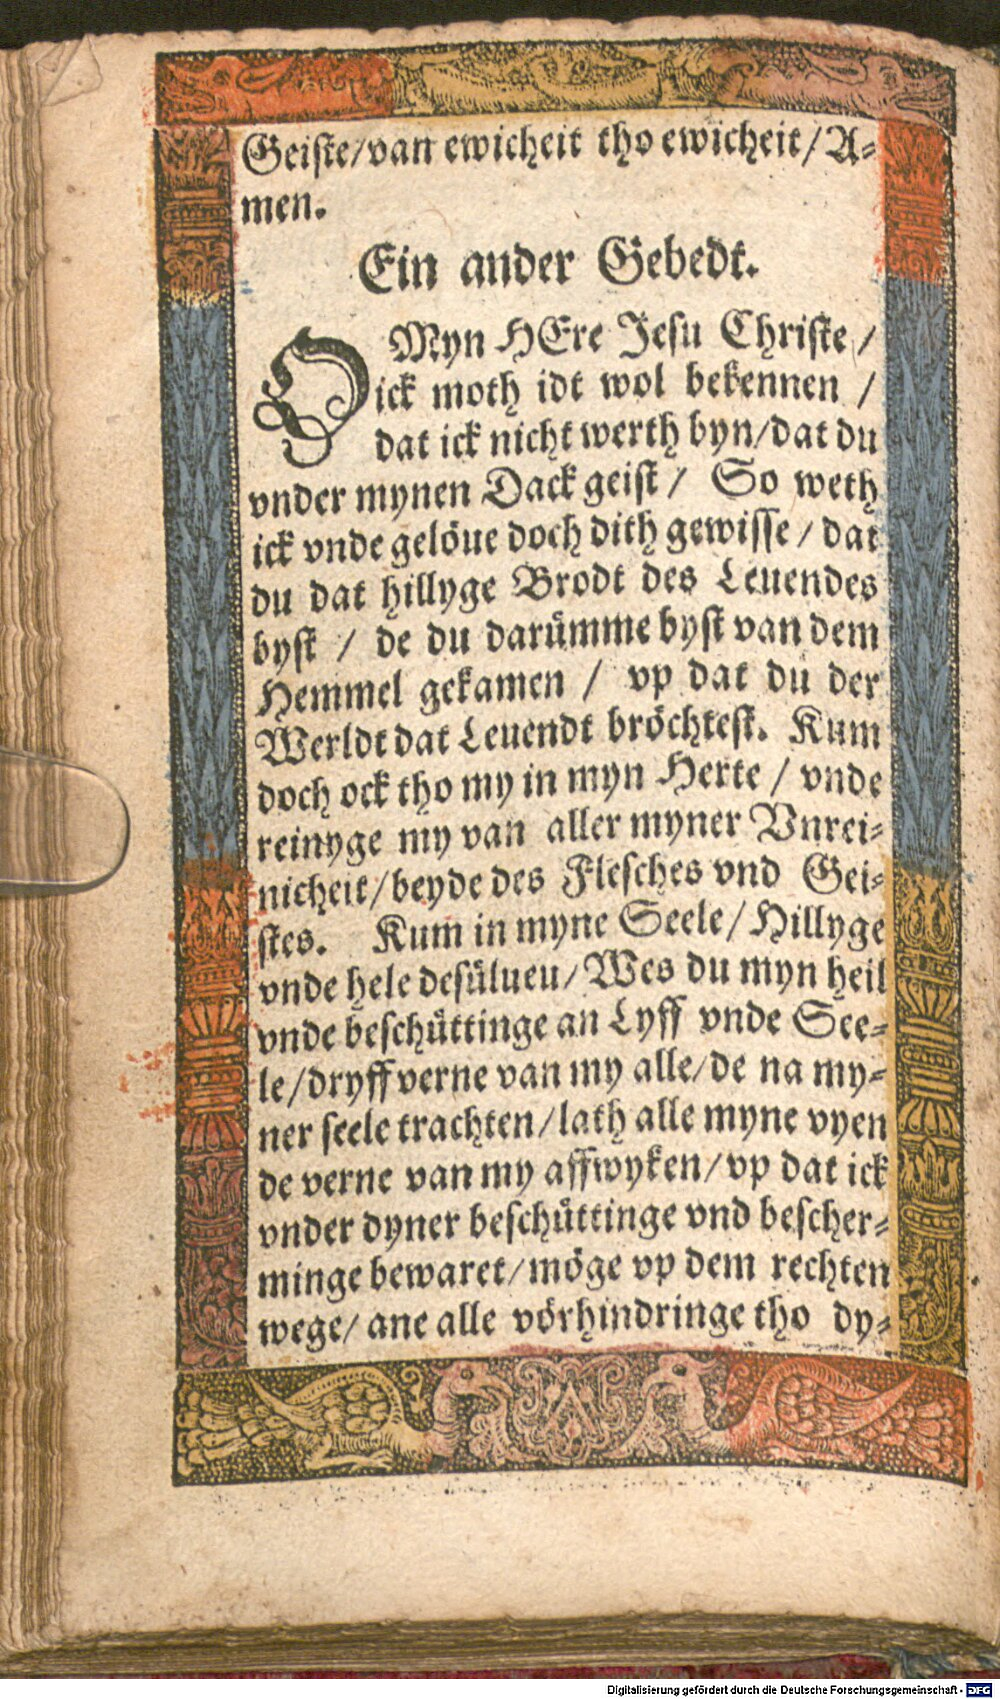 Geiste/van ewicheit tho ewicheit/A⸗
men.
Ein ander Gebedt.
O Myn HEre Jesu Christe /
ick moth idt wol bekennen /
dat ick nicht werth byn/dat du
vnder mynen Dack geist / So weth
ick vnde gelöue doch dith gewisse / dat
du dat hillyge Brodt des Leuendes
byst / de du darümme byst van dem
Hemmel gekamen / vp dat du der
Werldt dat Leuendt bröchtest. Kum
doch ock tho my in myn Herte / vnde
reinyge my van aller myner Vnrei⸗
nicheit/beyde des Flesches vnd Gei⸗
stes. Kum in myne Seele/Hillyge
vnde hele desülueu/Wes du myn heil
vnde beschüttinge an Lyff vnde See⸗
le/dryff verne van my alle/de na my⸗
ner seele trachten/lath alle myne vyen
de verne van my affwyken/vp dat ick
vnder dyner beschüttinge vnd bescher⸗
minge bewaret/möge vp dem rechten
wege/ane alle vörhindringe tho dy⸗
Digitalisierung gefördert durch die Deutsche Forschungsgemeinschaft - DFG